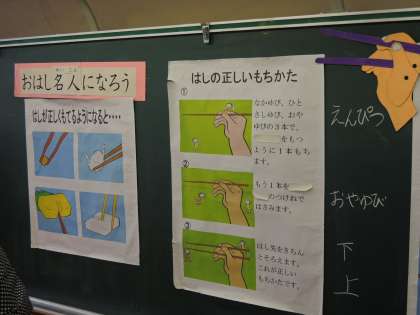 おはし名人になろう
はしが正しくもてるようになると・・・・
はしの正しいもちかた
①
なかゆび、ひと
さしゆび、おや
ゆびの3本で、
をもつ
ように1本もち
ます。
②
もう1本を
のつけねで
はさみます。
③
はし先をきちん
とそろえます。
これが正しい
もちかたです。
えんぴつ
おやゆび
下
上